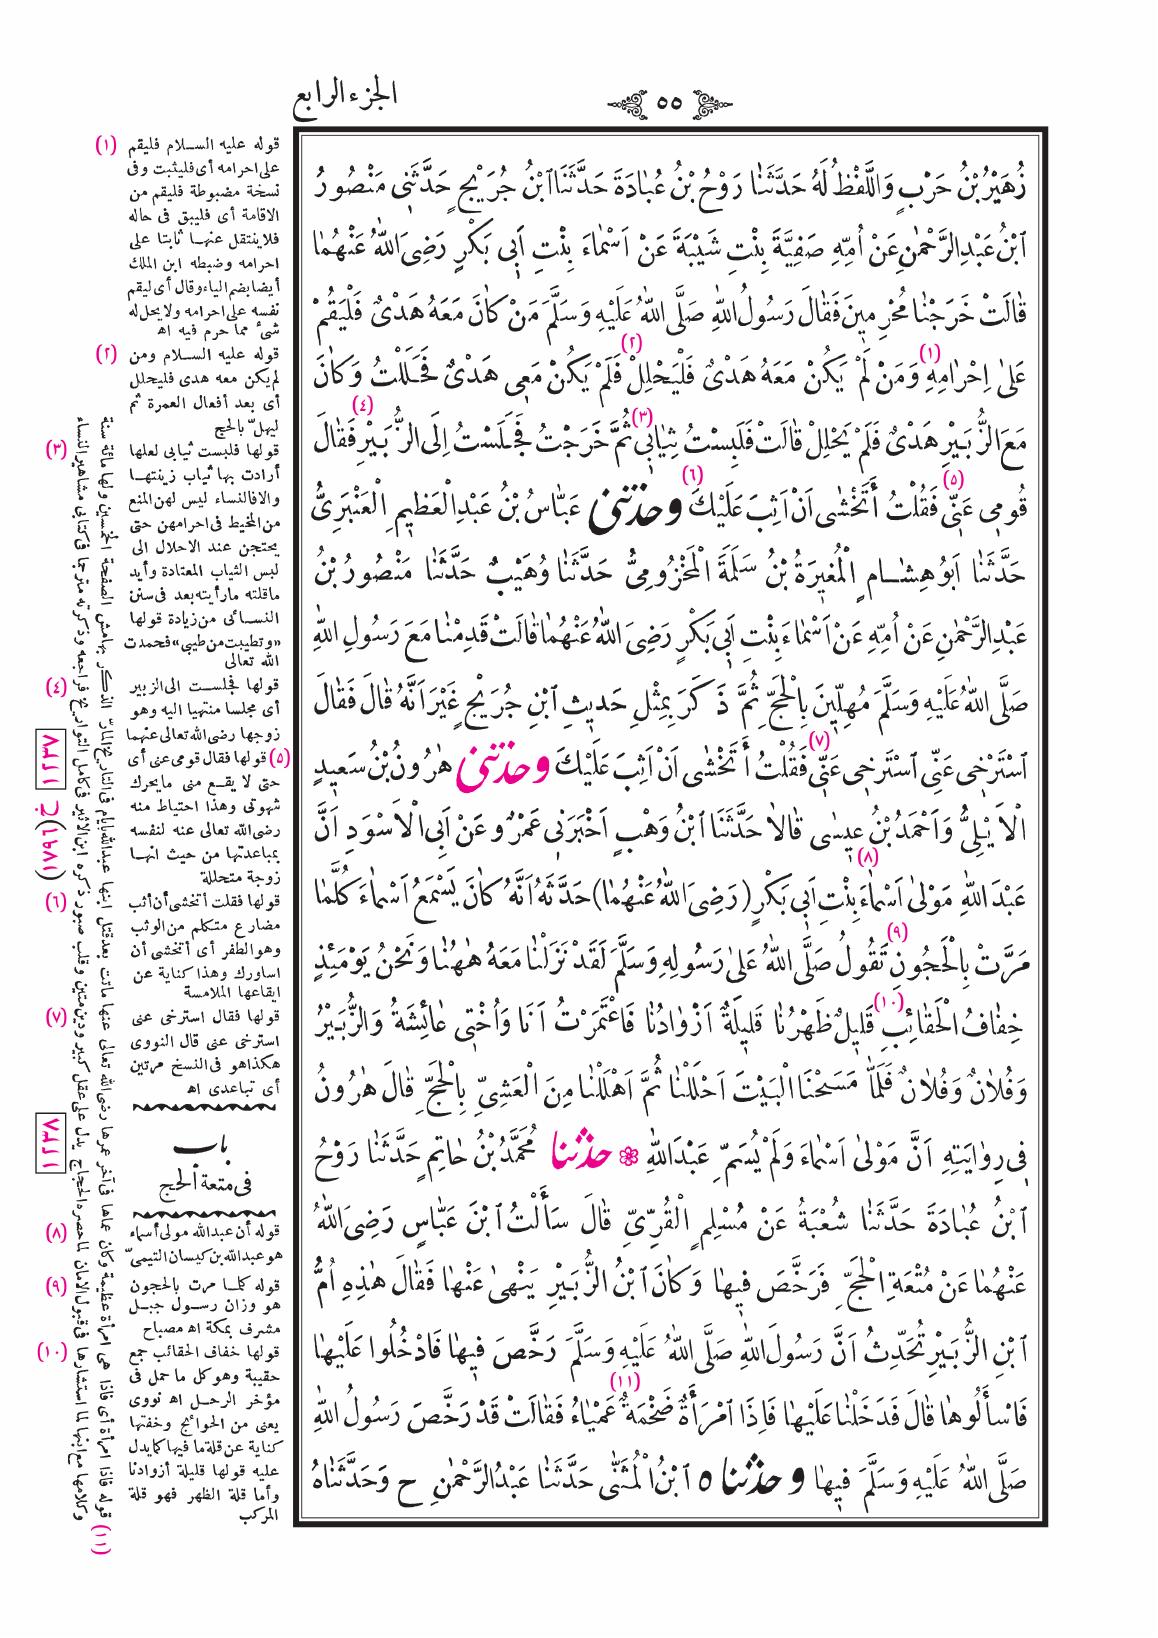 ٥٥
الجزء الرابع
زُهَيْرُ بْنُ حَرْبٍ وَاللَّفْظُ لَهُ حَدَّثَنَا رَوْحُ بْنُ عُبَادَةَ حَدَّثَنَا ابْنُ جُرَيْجٍ حَدَّثَنِي مَنْصُورُ
ابْنُ عَبْدِ الرَّحْمٰنِ عَنْ أُمِّهِ صَفِيَّةَ بِنْتِ شَيْبَةَ عَنْ اَسْمَاءَ بِنْتِ اَبِي بَكْرٍ رَضِيَ اللهُ عَنْهُمَا
قَالَتْ خَرَجْنَا مُحْرِمِينَ فَقَالَ رَسُولُ اللهِ صَلَّى اللهُ عَلَيْهِ وَسَلَّمَ مَنْ كَانَ مَعَهُ هَدْىٌ فَلْيَقُمْ
عَلٰى اِحْرَامِهِ (١) وَمَنْ لَمْ يَكُنْ مَعَهُ هَدْىٌ فَلْيَحْلِلْ (٢) فَلَمْ يَكُنْ مَعِي هَدْىٌ فَحَلَلْتُ وَكَانَ
مَعَ الزُّبَيْرِ هَدْىٌ فَلَمْ يَحْلِلْ قَالَتْ فَلَبِسْتُ ثِيَابِي (٣) ثُمَّ خَرَجْتُ فَجَلَسْتُ اِلَى الزُّبَيْرِ (٤) فَقَالَ
قُومِي عَنِّي (٥) فَقُلْتُ أَتَخْشٰى اَنْ اَثِبَ عَلَيْكَ (٦) وحدثنى عَبَّاسُ بْنُ عَبْدِ الْعَظِيمِ الْعَنْبَرِيُّ
حَدَّثَنَا اَبُو هِشَامٍ الْمُغِيرَةُ بْنُ سَلَمَةَ الْمَخْزُومِيُّ حَدَّثَنَا وُهَيْبٌ حَدَّثَنَا مَنْصُورُ بْنُ
عَبْدِ الرَّحْمٰنِ عَنْ اُمِّهِ عَنْ اَسْمَاءَ بِنْتِ اَبِي بَكْرٍ رَضِيَ اللهُ عَنْهُمَا قَالَتْ قَدِمْنَا مَعَ رَسُولِ اللهِ
صَلَّى اللهُ عَلَيْهِ وَسَلَّمَ مُهِلِّينَ بِالْحَجِّ ثُمَّ ذَكَرَ بِمِثْلِ حَدِيثِ ابْنِ جُرَيْجٍ غَيْرَ اَنَّهُ قَالَ فَقَالَ
اسْتَرْخِي عَنِّي اسْتَرْخِي عَنِّي (٧) فَقُلْتُ أَتَخْشٰى اَنْ اَثِبَ عَلَيْكَ وحدثنى هٰرُونُ بْنُ سَعِيدٍ
الْاَيْلِيُّ وَاَحْمَدُ بْنُ عِيسٰى قَالَا حَدَّثَنَا ابْنُ وَهْبٍ اَخْبَرَنِي عَمْرٌو عَنْ اَبِي الْاَسْوَدِ اَنَّ
عَبْدَ اللهِ مَوْلٰى اَسْمَاءَ (٨) بِنْتِ اَبِي بَكْرٍ (رَضِيَ اللهُ عَنْهُمَا) حَدَّثَهُ اَنَّهُ كَانَ يَسْمَعُ اَسْمَاءَ كُلَّمَا
مَرَّتْ بِالْحَجُونِ (٩) تَقُولُ صَلَّى اللهُ عَلٰى رَسُولِهِ وَسَلَّمَ لَقَدْ نَزَلْنَا مَعَهُ هٰهُنَا وَنَحْنُ يَوْمَئِذٍ
خِفَافُ الْحَقَائِبِ (١٠) قَلِيلٌ ظَهْرُنَا قَلِيلَةٌ اَزْوَادُنَا فَاعْتَمَرْتُ اَنَا وَاُخْتِي عَائِشَةُ وَالزُّبَيْرُ
وَفُلَانٌ وَفُلَانٌ فَلَمَّا مَسَحْنَا الْبَيْتَ اَحْلَلْنَا ثُمَّ اَهْلَلْنَا مِنَ الْعَشِيِّ بِالْحَجِّ قَالَ هٰرُونُ
فِي رِوَايَتِهِ اَنَّ مَوْلٰى اَسْمَاءَ وَلَمْ يُسَمِّ عَبْدَ اللهِ ❁ حدثنا مُحَمَّدُ بْنُ حَاتِمٍ حَدَّثَنَا رَوْحُ
ابْنُ عُبَادَةَ حَدَّثَنَا شُعْبَةُ عَنْ مُسْلِمٍ الْقُرِّيِّ قَالَ سَأَلْتُ ابْنَ عَبَّاسٍ رَضِيَ اللهُ
عَنْهُمَا عَنْ مُتْعَةِ الْحَجِّ فَرَخَّصَ فِيهَا وَكَانَ ابْنُ الزُّبَيْرِ يَنْهٰى عَنْهَا فَقَالَ هٰذِهِ اُمُّ
ابْنِ الزُّبَيْرِ تُحَدِّثُ اَنَّ رَسُولَ اللهِ صَلَّى اللهُ عَلَيْهِ وَسَلَّمَ رَخَّصَ فِيهَا فَادْخُلُوا عَلَيْهَا
فَاسْأَلُوهَا قَالَ فَدَخَلْنَا عَلَيْهَا فَاِذَا امْرَأَةٌ ضَخْمَةٌ (١١) عَمْيَاءُ فَقَالَتْ قَدْ رَخَّصَ رَسُولُ اللهِ
صَلَّى اللهُ عَلَيْهِ وَسَلَّمَ فِيهَا وحدثنا ٥ ابْنُ الْمُثَنّٰى حَدَّثَنَا عَبْدُ الرَّحْمٰنِ ح وَحَدَّثَنَاهُ
(١) قوله عليه السلام فليقم
على احرامه أى فليثبت وفى
نسخة مضبوطة فليقم من
الاقامة أى فليبق فى حاله
فلا ينتقل عنها ثابتا على
احرامه وضبطه ابن الملك
أيضا بضم الياء وقال أى ليقم
نفسه على احرامه ولا يحل له
شئ مما حرم فيه اه
(٢) قوله عليه السلام ومن
لم يكن معه هدى فليحلل
أى بعد أفعال العمرة ثم
ليهلّ بالحج
(٣) قولها فلبست ثيابى لعلها
أرادت بها ثياب زينتها
والا فالنساء ليس لهن المنع
من المخيط فى احرامهن حتى
يحتجن عند الاحلال الى
لبس الثياب المعتادة وأيد
ما قلته ما رأيته بعد فى سنن
النسائى من زيادة قولها
«وتطيبت من طيبى» فحمدت
الله تعالى
(٤) قولها فجلست الى الزبير
أى مجلسا منتهيا اليه وهو
زوجها رضى الله تعالى عنهما
(٥) قولها فقال قومى عنى أى
حتى لا يقع منى ما يحرك
شهوتى وهذا احتياط منه
رضى الله تعالى عنه لنفسه
بمباعدتها من حيث انها
زوجة متحللة
(٦) قولها فقلت أتخشى أن أثب
مضارع متكلم من الوثب
وهو الطفر أى أتخشى أن
اساورك وهذا كناية عن
ايقاعها الملامسة
(٧) قولها فقال استرخى عنى
استرخى عنى قال النووى
هكذا هو فى النسخ مرتين
أى تباعدى اه
باب
فى متعة الحج
(٨) قوله أن عبدالله مولى أسماء
هو عبدالله بن كيسان التيمىّ
(٩) قوله كلما مرت بالحجون
هو وزان رسول جبل
مشرف بمكة اه مصباح
(١٠) قولها خفاف الحقائب جمع
حقيبة وهو كل ما حمل فى
مؤخر الرحل اه نووى
يعنى من الحوائج وخفتها
كناية عن قلة ما فيها كما يدل
عليه قولها قليلة أزوادنا
وأما قلة الظهر فهو قلة
المركب
(١١) قوله فاذا امرأة أى فاذا هى امرأة عظيمة وكان عماها فى آخر عمرها رضى الله تعالى عنها ماتت بعد قتل ابنها عبدالله بأيام فى التاريخ المارّ الذكر بهامش الصفحة الخمسين ولها مائة سنة
وكلامها مع ابنها لما استشارها فى قبول الامان لما حصره الحجاج يدل على عقل كبير ودين متين وقلب صبور ذكره ابن الاثير فى كامل التواريخ فراجعه وذكرته مترجما فى كتابى مشاهير النساء